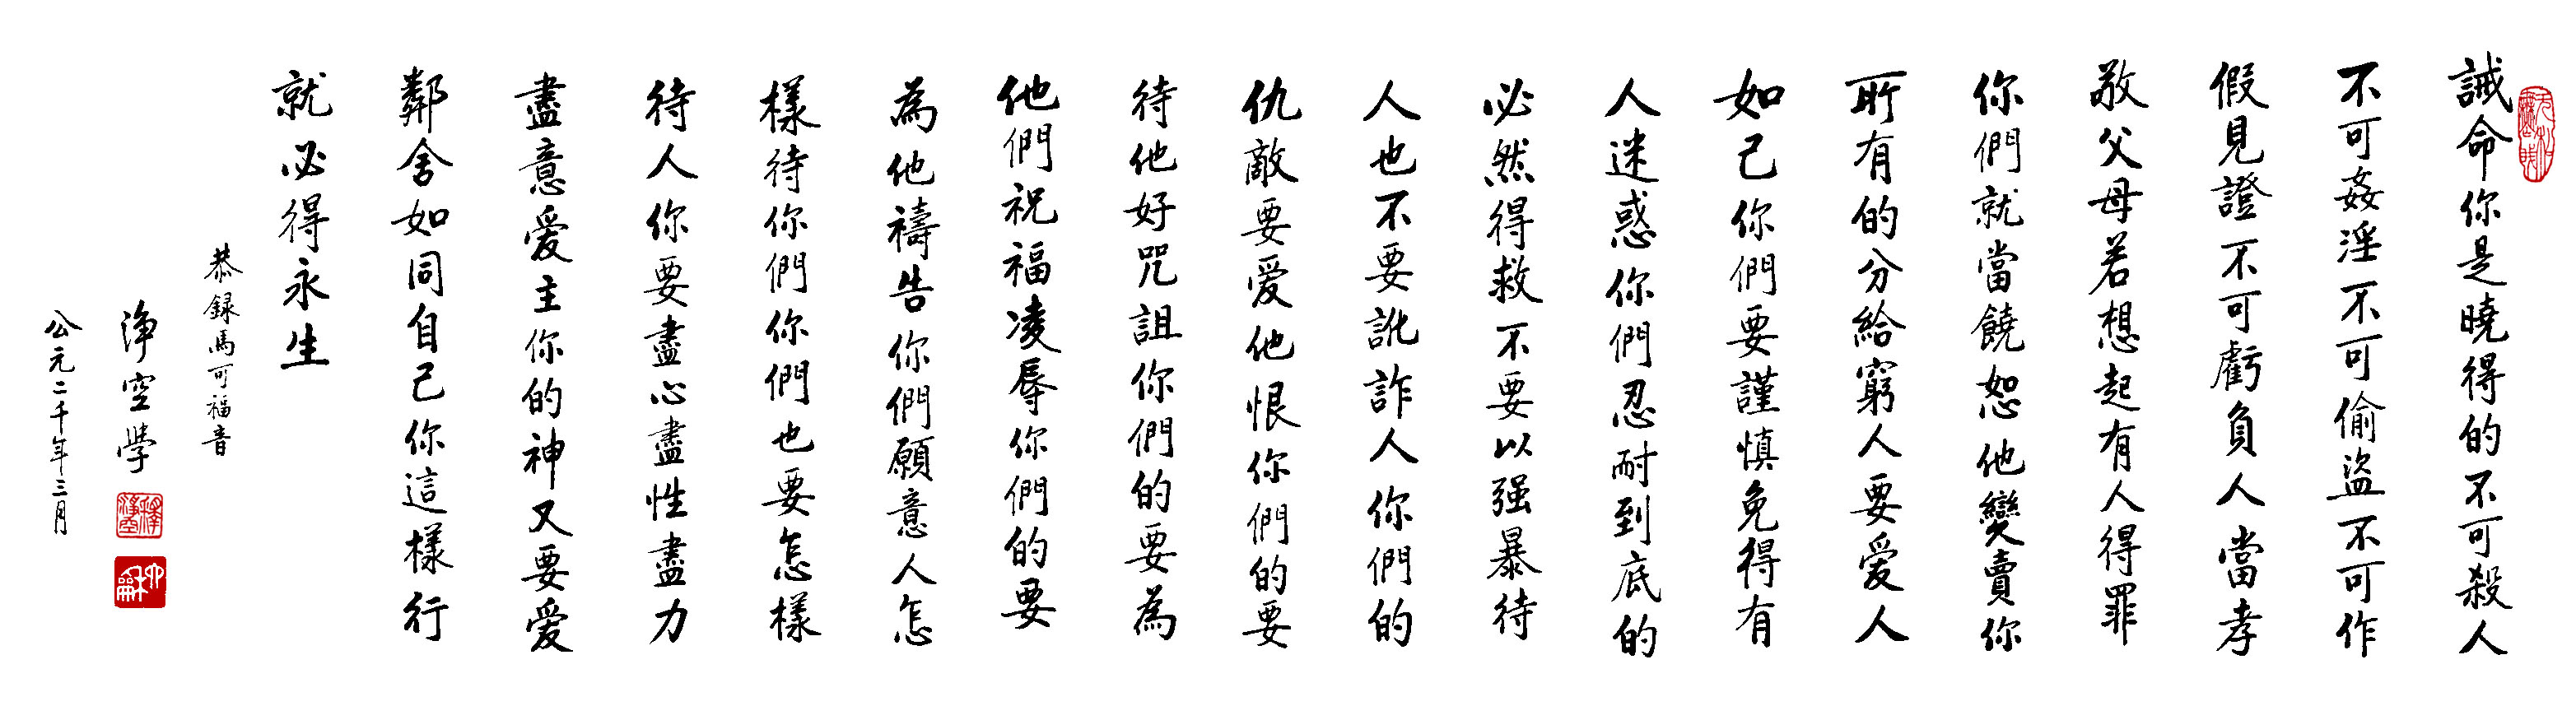 誡命你是曉得的不可殺人
不可姦淫不可偷盜不可作
假見證不可虧負人當孝
敬父母若想起有人得罪
你們就當饒恕他變賣你
所有的分給窮人要愛人
如己你們要謹慎免得有
人迷惑你們忍耐到底的
必然得救不要以强暴待
人也不要訛詐人你們的
仇敵要愛他恨你們的要
待他好咒詛你們的要為
他們祝福凌辱你們的要
為他禱告你們願意人怎
樣待你們你們也要怎樣
待人你要盡心盡性盡力
盡意愛主你的神又要愛
鄰舍如同自己你這樣行
就必得永生
恭録馬可福音
淨空學
公元二千年三月